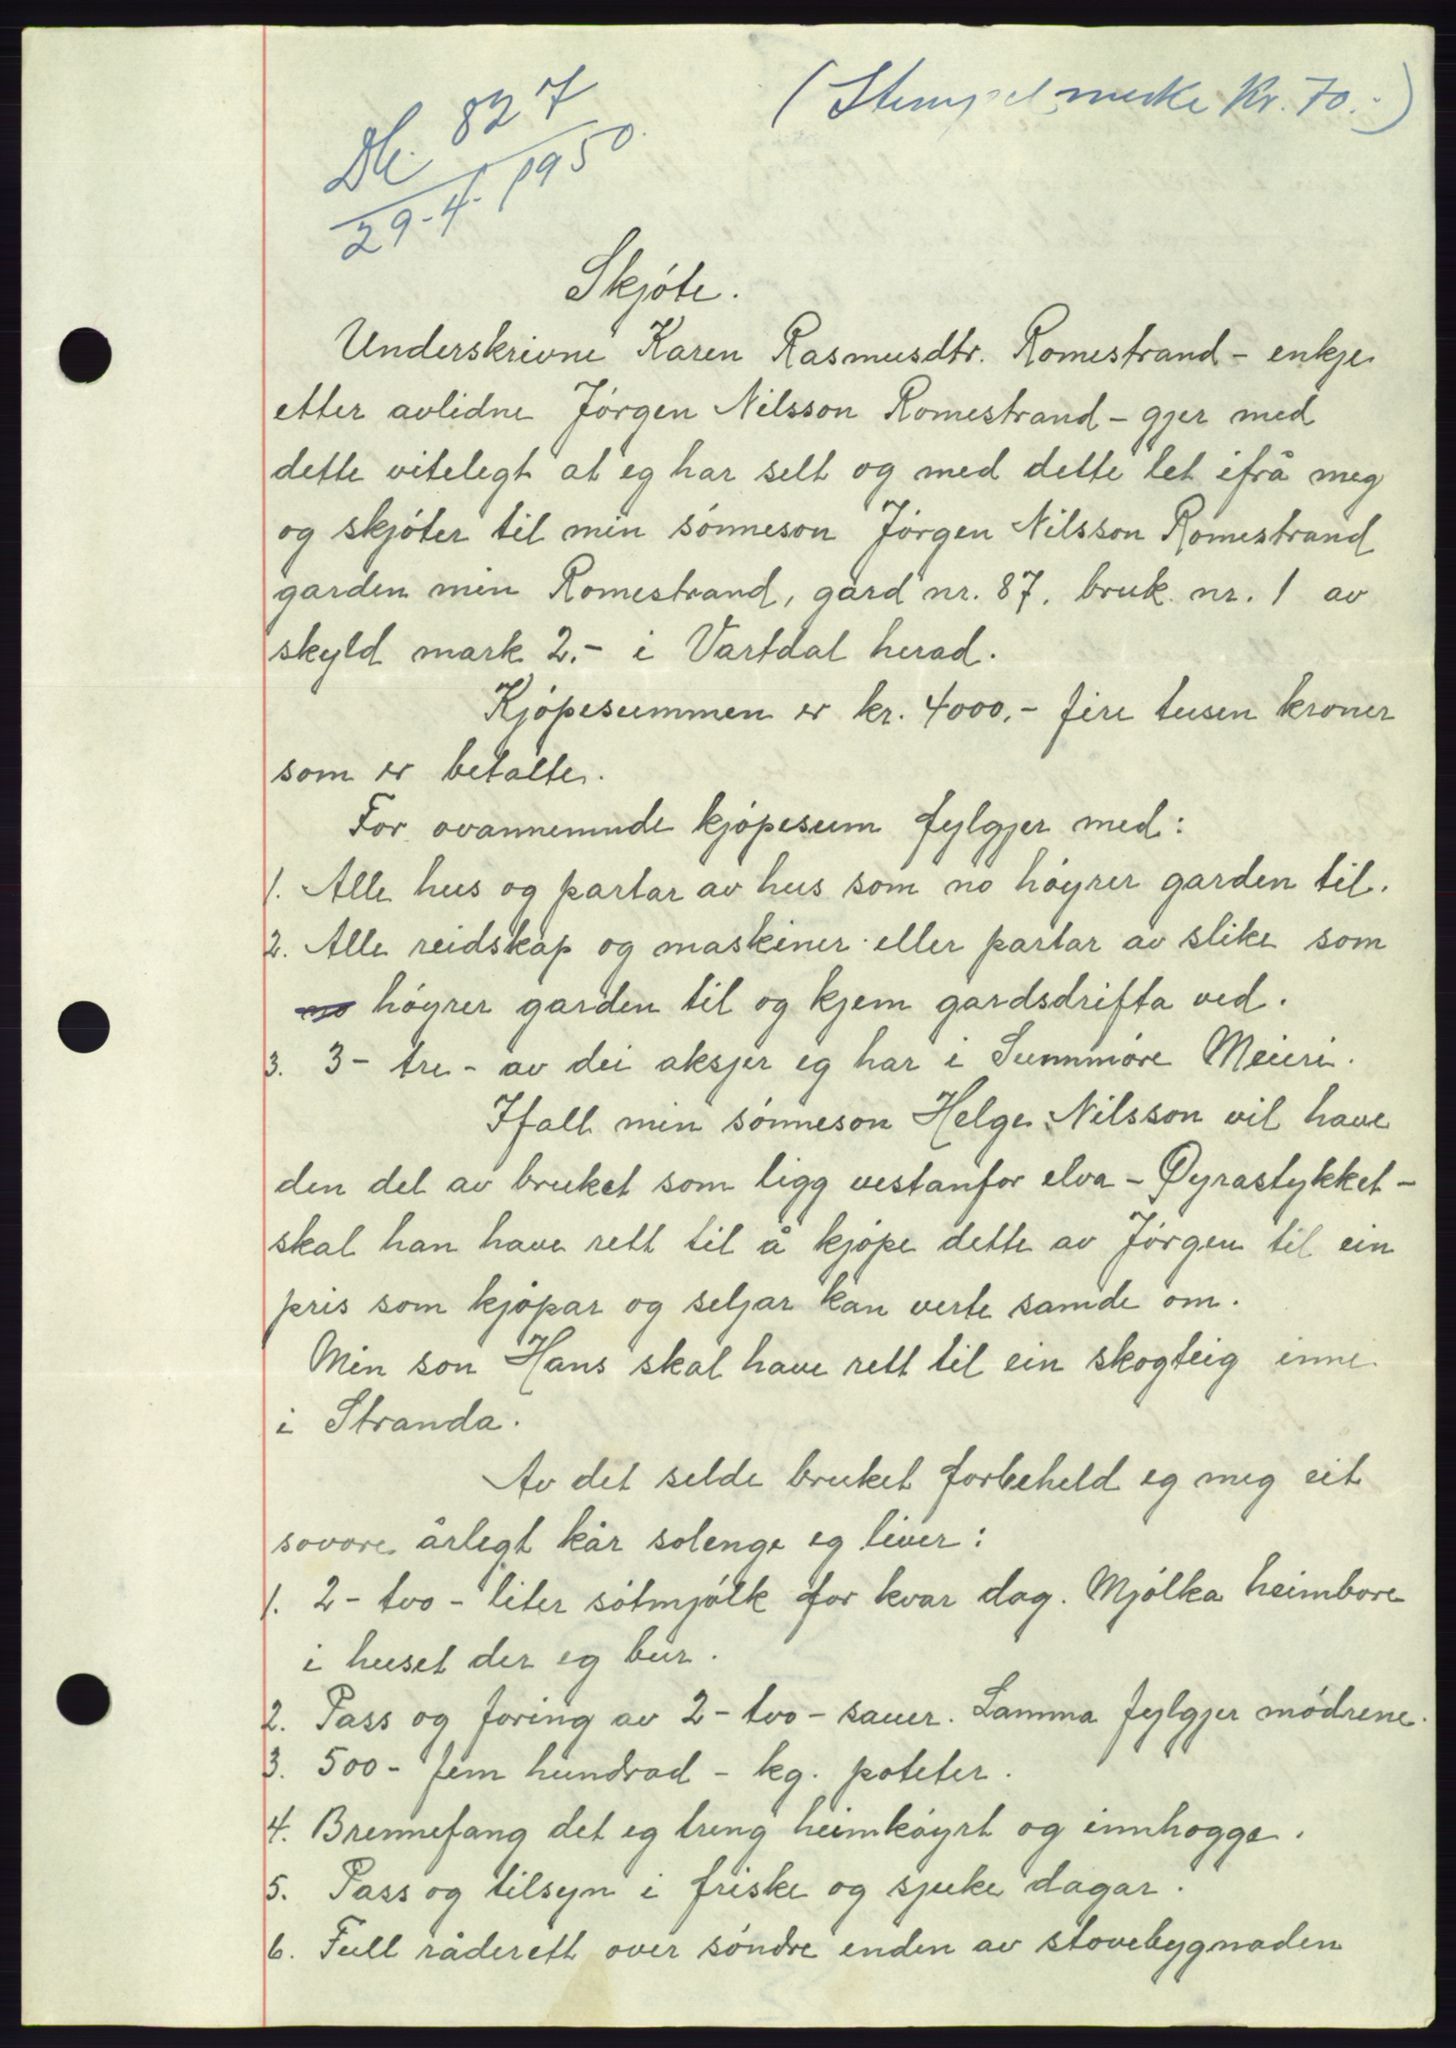 (Stempelmerke kr. 70.-)
Db. 827
29-4-1950
Skjóte.
Underskrivne Karen Rasmusdtr. Romestrand - enkje
etter avlidne Jórgen Nilsson Romestrand - gjer med
dette vitelegt at eg har selt og med dette let ifrå meg
og skjóter til min sónneson Jórgen Nilsson Romestrand
garden min Romestrand, gard nr. 87. bruk nr. 1 av
skyld mark 2.- i Vartdal herad.
Kjópesummen er kr. 4000.- fire tusen kroner
som er betalte.
For ovannemnde kjópesum fylgjer med:
1. Alle hus og partar av hus som no hóyrer garden til.
2. Alle reidskap og maskiner eller partar av slike som
no hóyrer garden til og kjem gardsdrifta ved.
3. 3 - tre - av dei aksjer eg har i Sunnmóre Meieri.
Ifall min sónneson Helge Nilsson vil have
den del av bruket som ligg vestanfor elva - Øyrastykket -
skal han have rett til å kjópe dette av Jórgen til ein
pris som kjópar og seljar kan verte samde om.
Min son Hans skal have rett til ein skogteig inne
i Stranda.
Av det selde bruket forbeheld eg meg eit
sovore årlegt kår solenge eg liver:
1. 2 - tvo - liter sótmjólk for kvar dag. Mjólka heimbore
i huset der eg bur.
2. Pass og foring av 2 - tvo - sauer. Lamma fylgjer módrene.
3. 500 - fem hundrad - kg. poteter.
4. Brennefang det eg treng heimkóyrt og innhogge.
5. Pass og tilsyn i friske og sjuke dagar.
6. Full råderett over sóndre enden av stovebygnaden